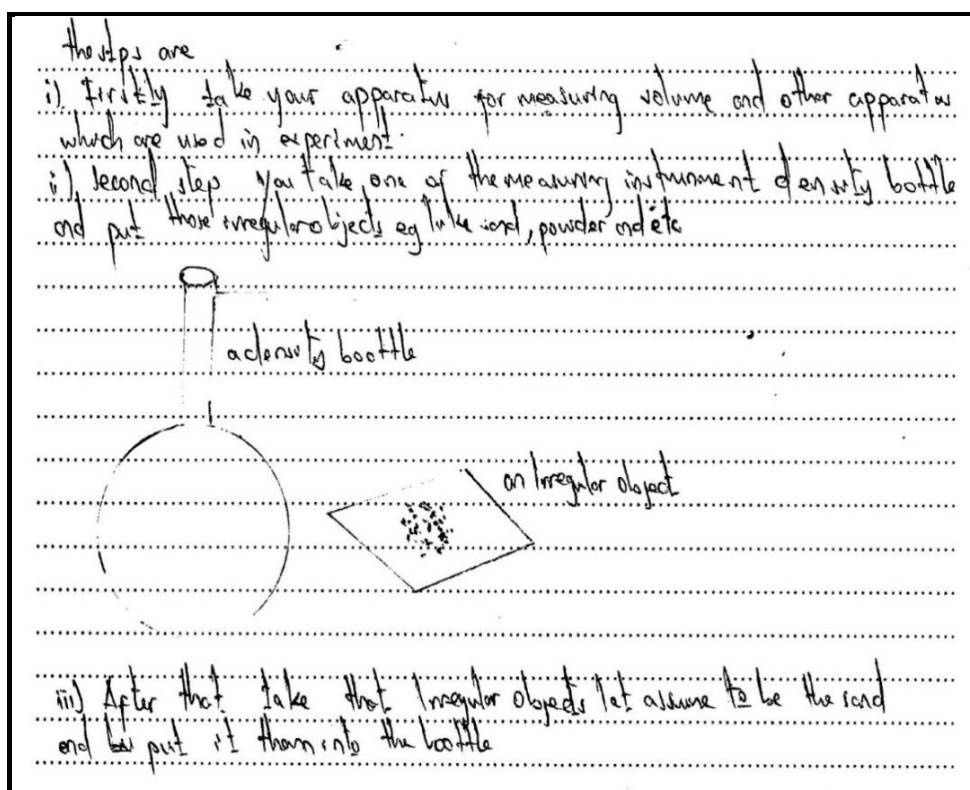 the steps are
i) Firstly take your apparatus for measuring volume and other apparatus
which are used in experiment.
ii) second step you take one of the measuring instrunment density bottle
and put those irregular objects eg like sand, powder and etc
a density boottle
an Irregular object
iii) After that take that Irregular Objects let assume to be the sand
and put it them into the boottle